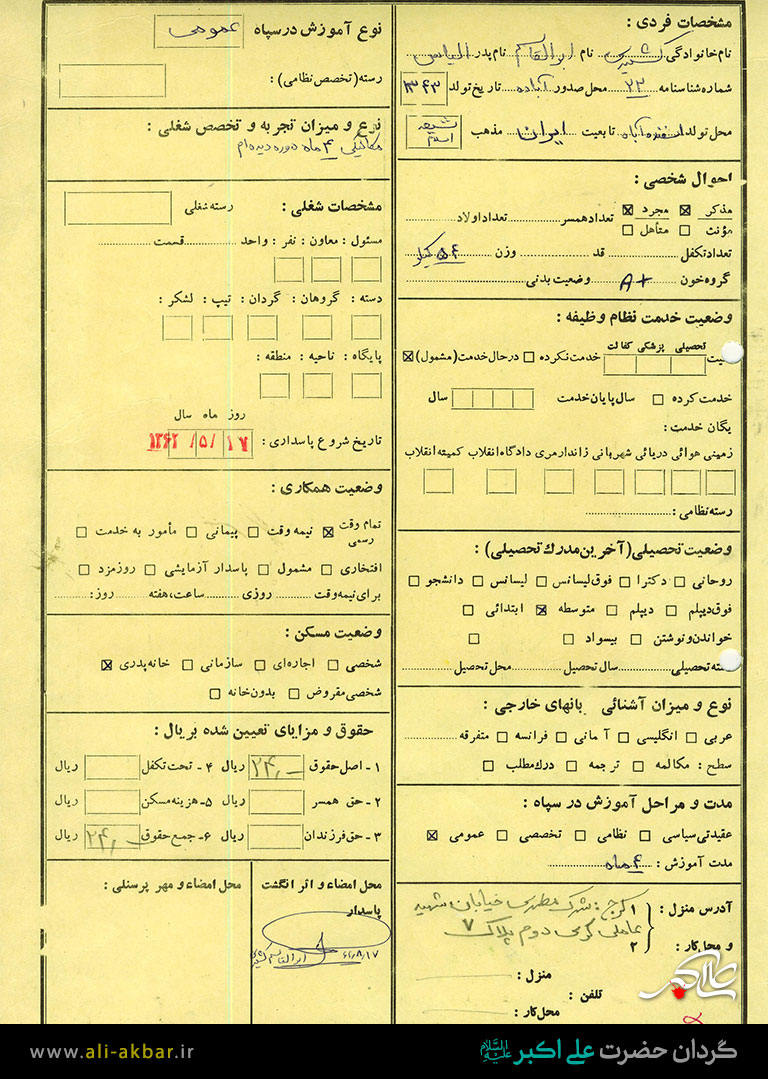 مشخصات فردی :
نام خانوادگی کشمیری نام ابوالقاسم نام پدر الیاس
شماره شناسنامه ۲۲ محل صدور آباده تاریخ تولد ۱۳۴۳
محل تولد تابعیت ایران مذهب شیعه اسلام
احوال شخصی :
مذکر ☒ مجرد ☒ تعداد همسر تعداد اولاد
مؤنث ☐ متأهل ☐
تعداد تکفل قد وزن ۵۴ کیلو
گروه خون A+ وضعیت بدنی
وضعیت خدمت نظام وظیفه :
تحصیلی پزشکی کفالت
خدمت نکرده ☐ در حال خدمت (مشمول) ☒
خدمت کرده ☐ سال پایان خدمت سال
یگان خدمت :
زمینی هوائی دریائی شهربانی ژاندارمری دادگاه انقلاب کمیته انقلاب
رسته نظامی :
وضعیت تحصیلی (آخرین مدرك تحصیلی) :
روحانی ☐ دکترا ☐ فوق لیسانس ☐ لیسانس ☐ دانشجو ☐
فوق دیپلم ☐ دیپلم ☐ متوسطه ☒ ابتدائی ☐
خواندن و نوشتن ☐ بیسواد ☐ ☐
سته تحصیلی سال تحصیل محل تحصیل
نوع و میزان آشنائی بانهای خارجی :
عربی ☐ انگلیسی ☐ آلمانی ☐ فرانسه ☐ متفرقه
سطح : مکالمه ☐ ترجمه ☐ درك مطلب ☐
مدت و مراحل آموزش در سپاه :
عقیدتی سیاسی ☐ نظامی ☐ تخصصی ☐ عمومی ☒
مدت آموزش : ۴ ماه
آدرس منزل : ۱ کرج : شهرک مطهری خیابان شهید
عاملی کوی دوم پلاک ۷
و محل کار : ۲
منزل :
تلفن :
محل کار :
نوع آموزش در سپاه عمومی
رسته (تخصص نظامی) :
نوع و میزان تجربه و تخصص شغلی :
مکانیکی ۴ ماه دوره دیده ام
مشخصات شغلی : رسته شغلی
مسئول : معاون : نفر : واحد قسمت
دسته : گروهان : گردان : تیپ : لشکر :
پایگاه : ناحیه : منطقه :
روز ماه سال
تاریخ شروع پاسداری : ۱۷ /۵/ ۱۳۶۲
وضعیت همکاری :
تمام وقت رسمی ☒ نیمه وقت ☐ پیمانی ☐ مأمور به خدمت ☐
افتخاری ☐ مشمول ☐ پاسدار آزمایشی ☐ روزمزد ☐
برای نیمه وقت روزی ساعت، هفته روز:
وضعیت مسکن :
شخصی ☐ اجاره ای ☐ سازمانی ☐ خانه پدری ☒
شخصی مقروض ☐ بدون خانه ☐
حقوق و مزایای تعیین شده بریال :
۱- اصل حقوق ۲۴۰۰۰ ریال ۴- تحت تکفل ریال
۲- حق همسر ریال ۵- هزینه مسکن ریال
۳- حق فرزندان ریال ۶- جمع حقوق ۲۴۰۰۰ ریال
محل امضاء و اثر انگشت پاسدار
ابوالقاسم کشمیری
محل امضاء و مهر پرسنلی :
علی اکبر
گردان حضرت علی اکبر علیه السلام
www.ali-akbar.ir